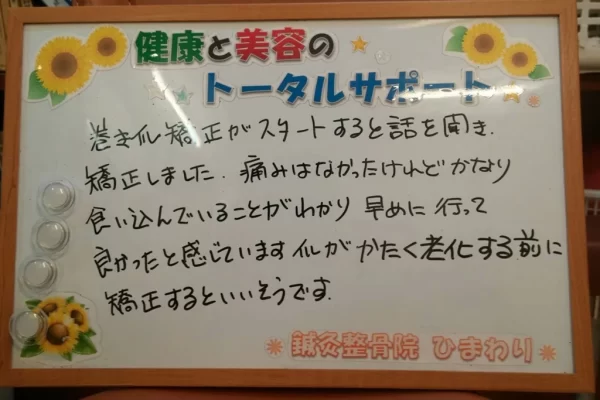 健康と美容の
トータルサポート
巻き爪矯正がスタートすると話を聞き.
矯正しました. 痛みはなかったけれどかなり
食い込んでいることがわかり 早めに 行って
良かったと感じています 爪がかたく老化する前に
矯正するといいそうです.
鍼灸整骨院 ひまわり